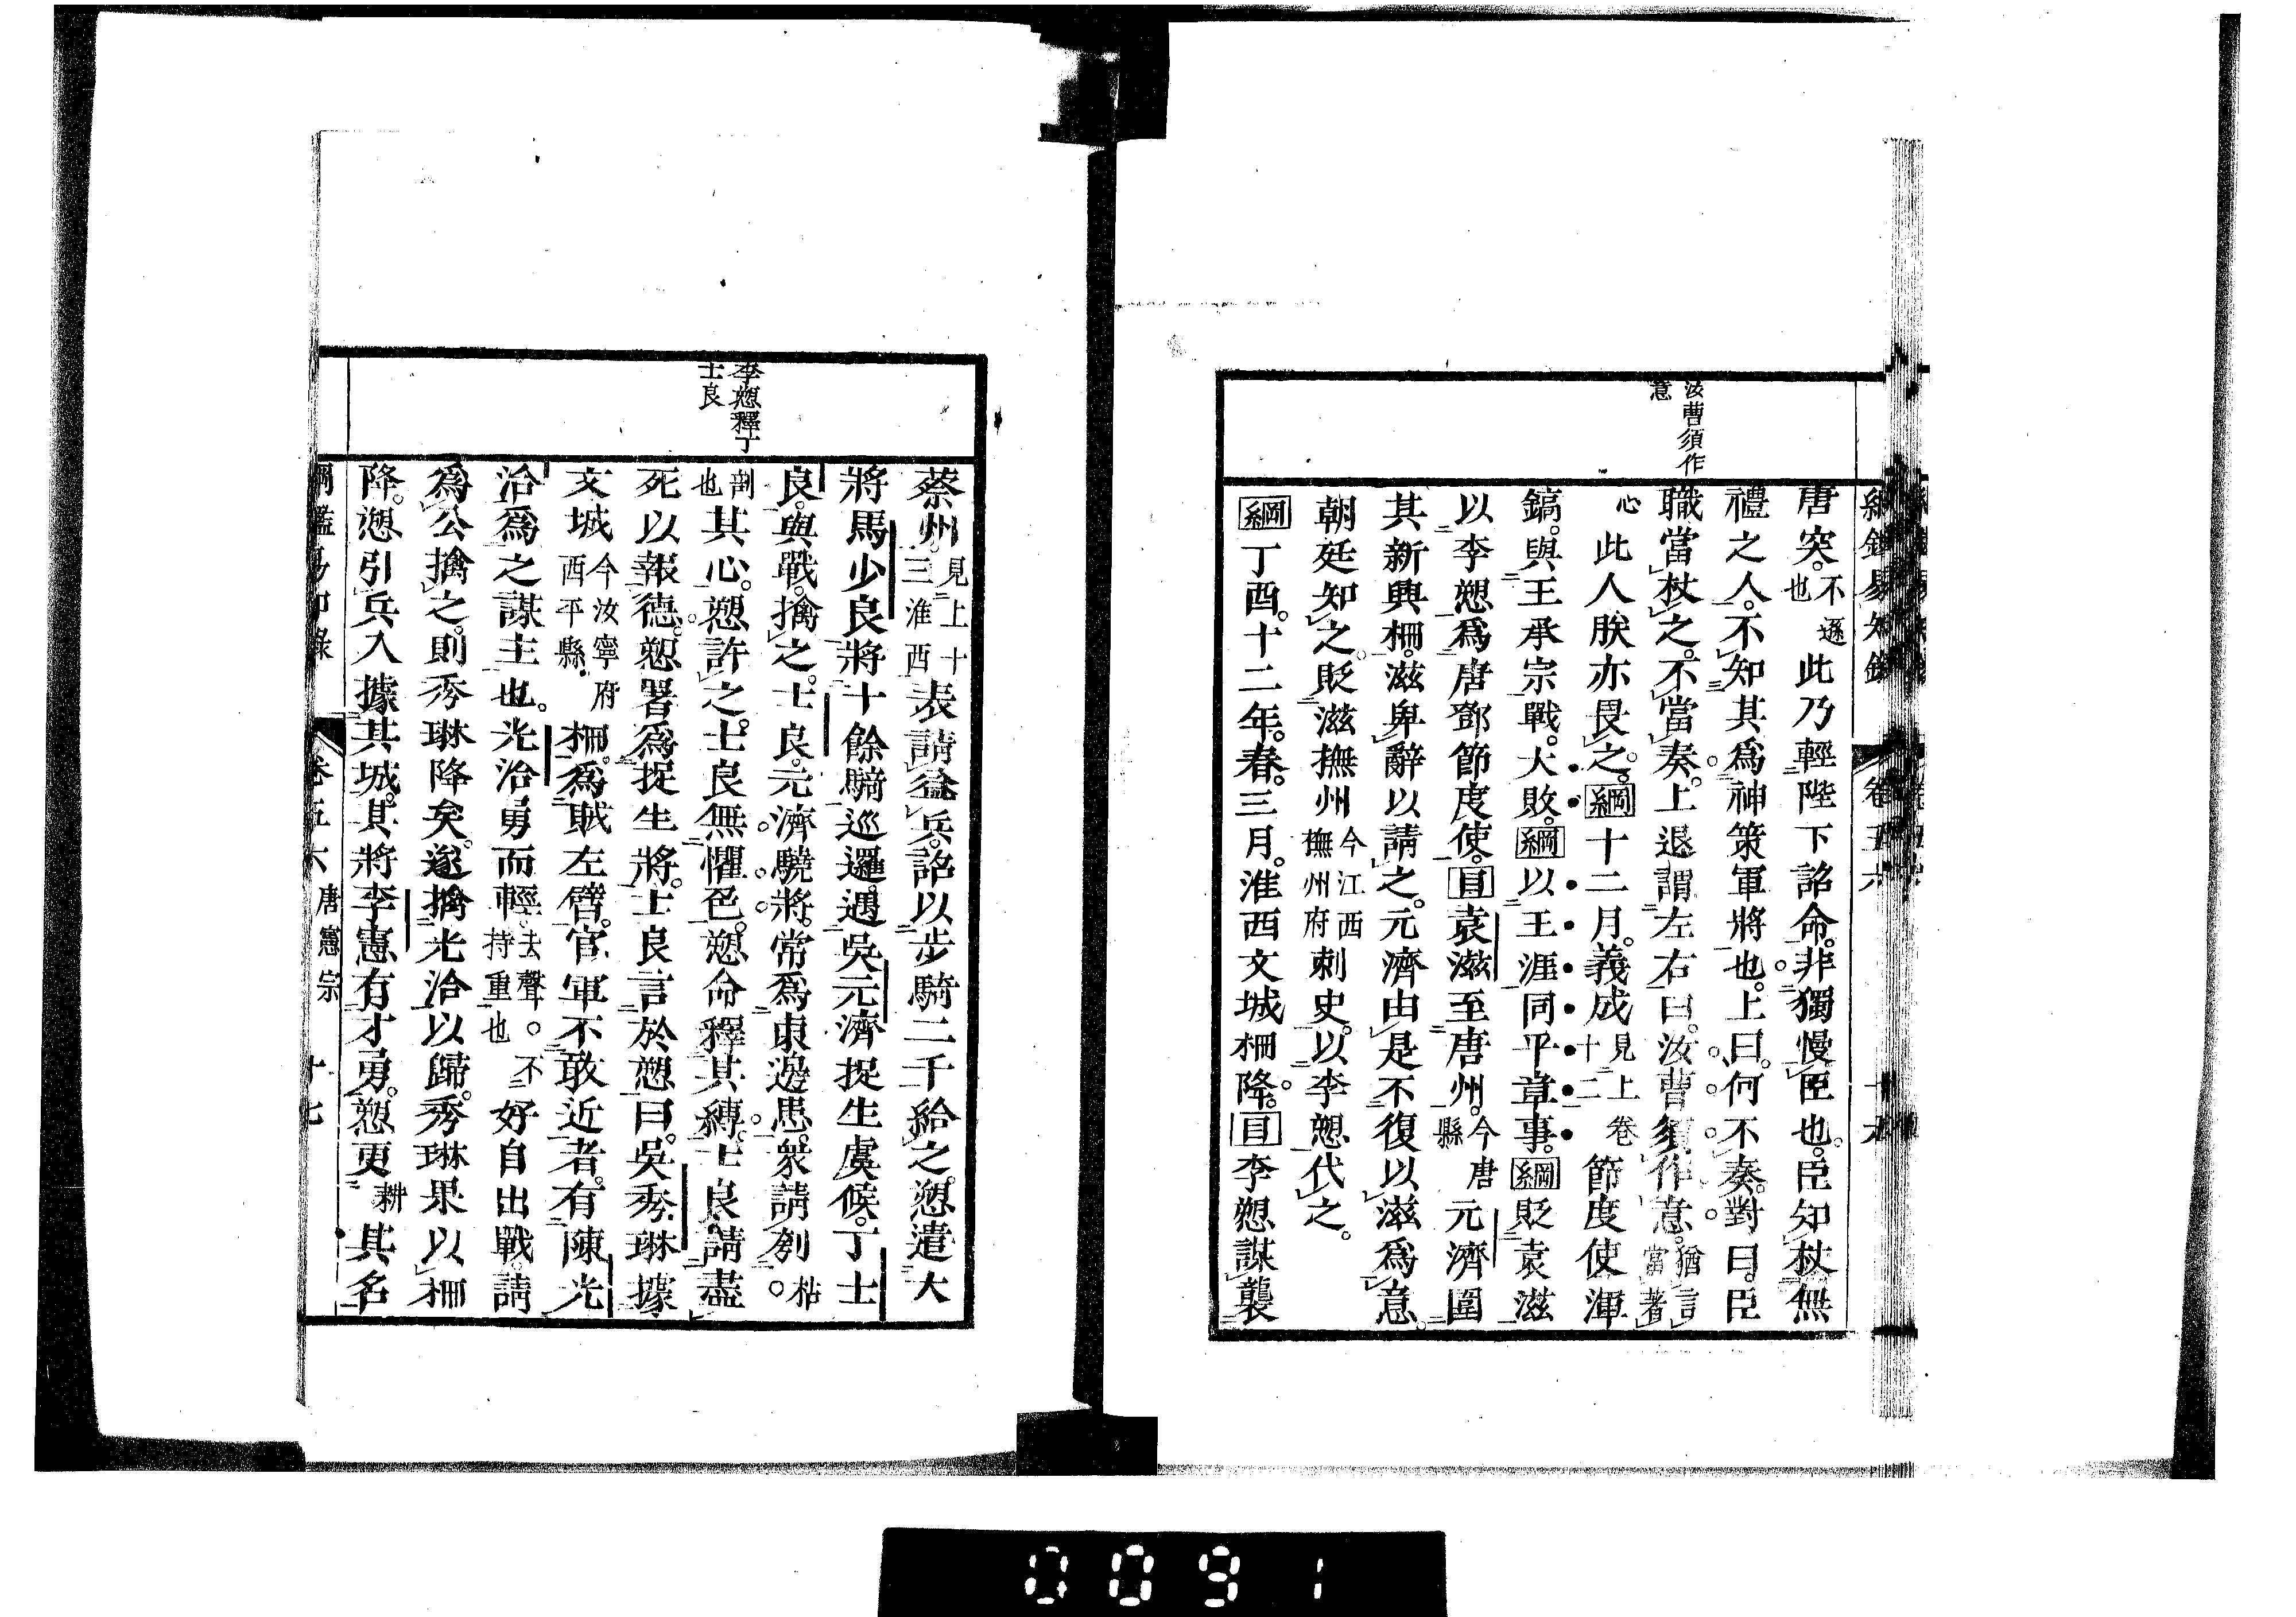 汝曹須作
意
唐突。不遜也此乃輕陛下詔命。非獨慢臣也。臣知杖無
禮之人。不知其爲神策軍將也。上曰。何不奏。對曰。臣
職當杖之。不當奏。上退謂左右曰。汝曹須作意。猶言當著
心此人朕亦畏之。綱十二月。義成見上卷十二節度使渾
鎬。與王承宗戰。大敗。綱以王涯同平章事。綱貶袁滋
以李愬爲唐鄧節度使。目袁滋至唐州。今唐縣元濟圍
其新興柵。滋卑辭以請之。元濟由是不復以滋爲意。
朝廷知之。貶滋撫州今江西撫州府刺史。以李愬代之。
綱丁酉。十二年。春。三月。淮西文城柵降。目李愬謀襲
李愬釋丁
士良
蔡州。見上十三淮西表請益兵。詔以步騎二千給之。愬遣大
將馬少良將十餘騎巡邏。遇吳元濟捉生虞候。丁士
良。與戰。擒之。士良。元濟驍將。常爲東邊患。衆請刳。枯○
剖也其心。愬許之。士良無懼色。愬命釋其縛。士良請盡
死以報德。愬署爲捉生將。士良言於愬曰。吳秀琳據
文城今汝寧府西平縣柵。爲賊左臂。官軍不敢近者。有陳光
洽爲之謀主也。光洽勇而輕去聲○不持重也不好自出戰。請
爲公擒之。則秀琳降矣。遂擒光洽以歸。秀琳果以柵
降。愬引兵入據其城。其將李憲有才勇。愬更耕其名
綱鑑易知錄 卷五六 唐憲宗 十七
0091